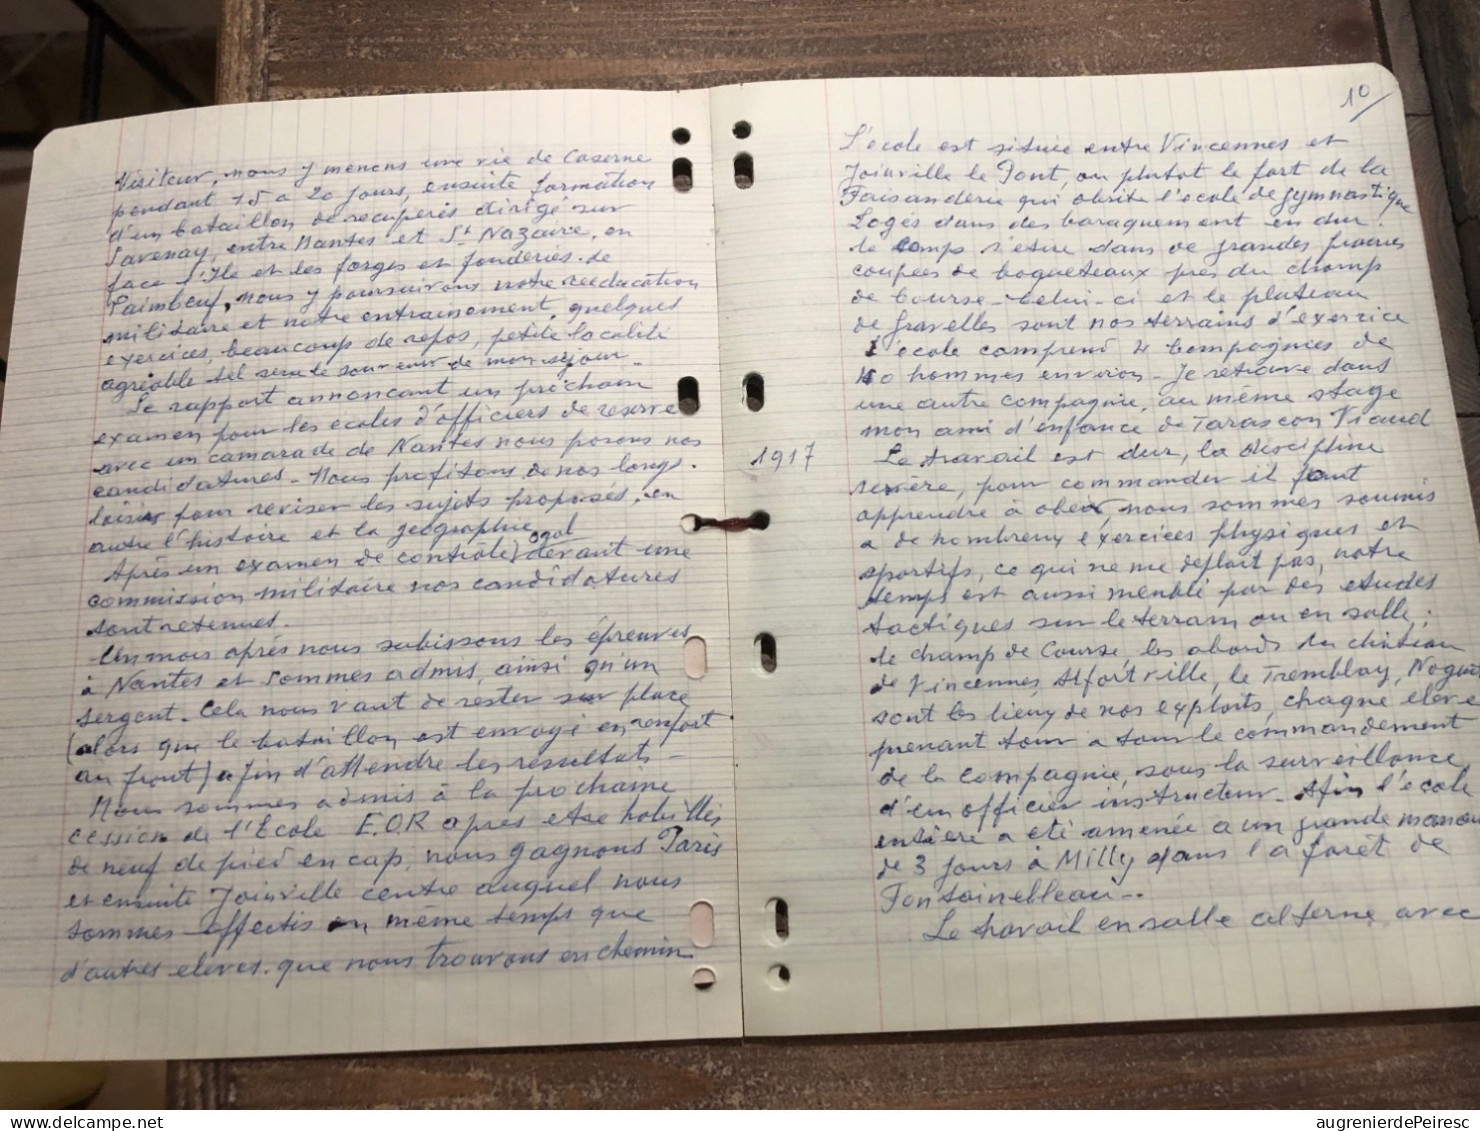 Visiteur, nous y menons une vie de Caserne
pendant 15 a 20 jours, ensuite formation
d'un bataillon de recuperés dirigé sur
Savenay, entre Nantes et St Nazaire, en
face l'Ile et les forges et fonderies de
Paimbeuf, nous y poursuivons notre reeducation
militaire et notre entrainement, quelques
exercices, beaucoup de repos, petite localité
agréable tel sera le souvenir de mon sejour.
Le rapport annoncant un prochain
examen pour les écoles d'officiers de reserve
avec un camarade de Nantes nous posons nos
candidatures - Nous profitons de nos longs
loisirs pour reviser les sujets proposés, en
autre l'histoire et la geographie
Après un examen de contrôle) oral devant une
commission militaire nos candidatures
sont retenues.
Un mois après nous subissons les épreuves
à Nantes et sommes admis, ainsi qu'un
sergent. Cela nous vaut de rester sur place
(alors que le bataillon est envoyé en renfort
au front) afin d'attendre les ressultats -
Nous sommes admis à la prochaine
cession de l'Ecole E.O.R apres etre habillés
de neuf de pied en cap, nous gagnons Paris
et ensuite Joinville centre auquel nous
sommes affectés en même temps que
d'autres eleves. que nous trouvons en chemin
10
1917
L'école est située entre Vincennes et
Joinville le Pont, ou plutot le fort de la
Faisanderie qui abrite l'école de gymnastique
Logés dans des baraquement en dur.
le camp s'etire dans de grandes prairies
coupées de boqueteaux près du champ
de Course - Celui-ci et le plateau
de Gravelles sont nos terrains d'exercice
L'école comprend 4 Compagnies de
hommes environ - Je retrouve dans
une autre compagnie, au même stage
mon ami d'enfance de Tarascon Viaud
Le travail est dur, la discipline
severe, pour commander il faut
apprendre à obeir, nous sommes soumis
a de nombreux exercices physiques et
sportifs, ce qui ne me deplait pas, notre
temps est aussi meublé par des etudes
tactiques sur le terrain ou en salle,
le champ de Course, les abords du château
de Vincennes, Alfortville, le Tremblay, Nogent
sont les lieux de nos exploits, chaque eleve
prenant tour a tour le commandement
de la compagnie, sous la surveillance
d'un officier instructeur - Afin l'école
entière a été amenée a un grande manoeu
de 3 jours à Milly dans la forêt de
Fontainebleau -.
Le travail en salle alterne avec
augrenierdePeiresc